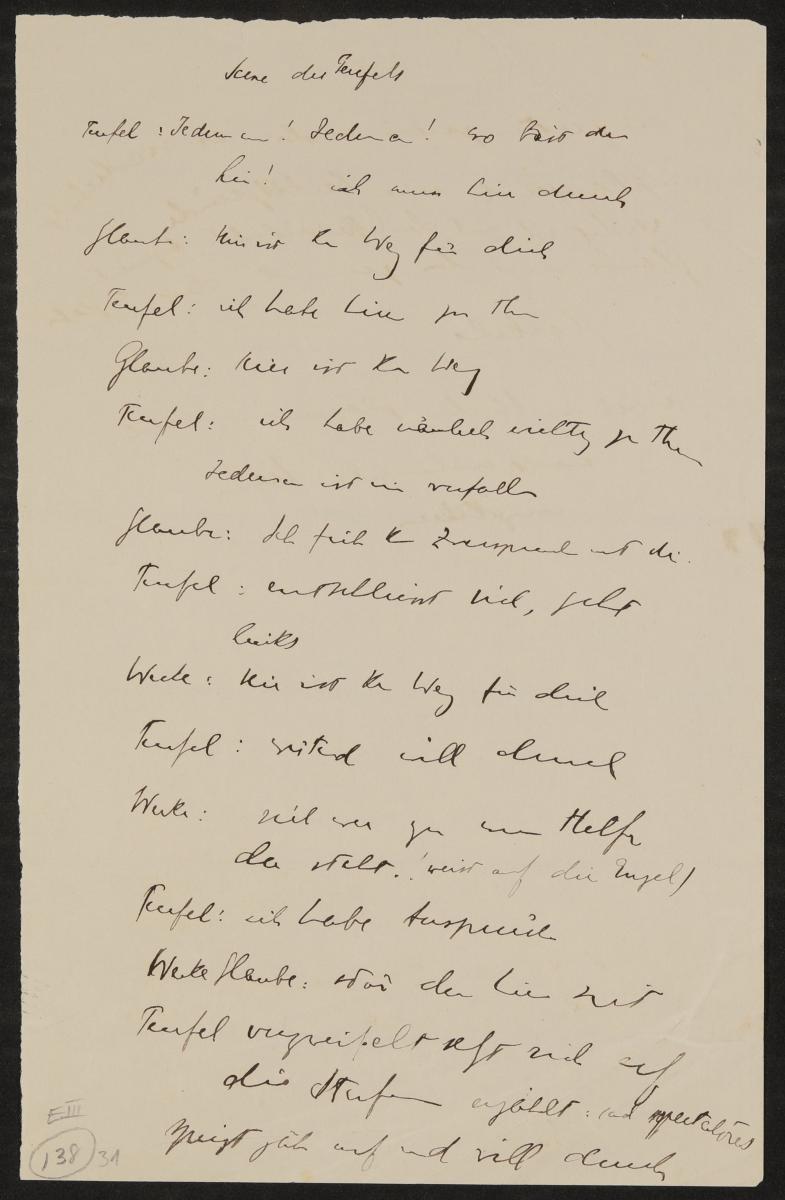 Scene des Teufels
Teufel: Jederman! Jederman! wo bist du
hin! ich muss hier durch
Glaube: Hier ist kein Weg für dich
Teufel: ich habe hier zu thun
Glaube: Hier ist kein Weg
Teufel: ich habe nämlich wichtig zu thun
Jederman ist mir verfallen
Glaube: Ich führ kein Zwiesprach mit dir.
Teufel: entschliesst sich, geht
links
Werke: Hier ist kein Weg für dich
Teufel: will durch
Werke: sieh wer zu Helfer
da steht. (weist auf die Engel)
Teufel: ich habe Ansprüche
Werke Glaube: du hier
Teufel verzweifelt setzt sich auf
die Stufen erzählt: ad spectatores
springt jäh auf und will durch
E III
138 31